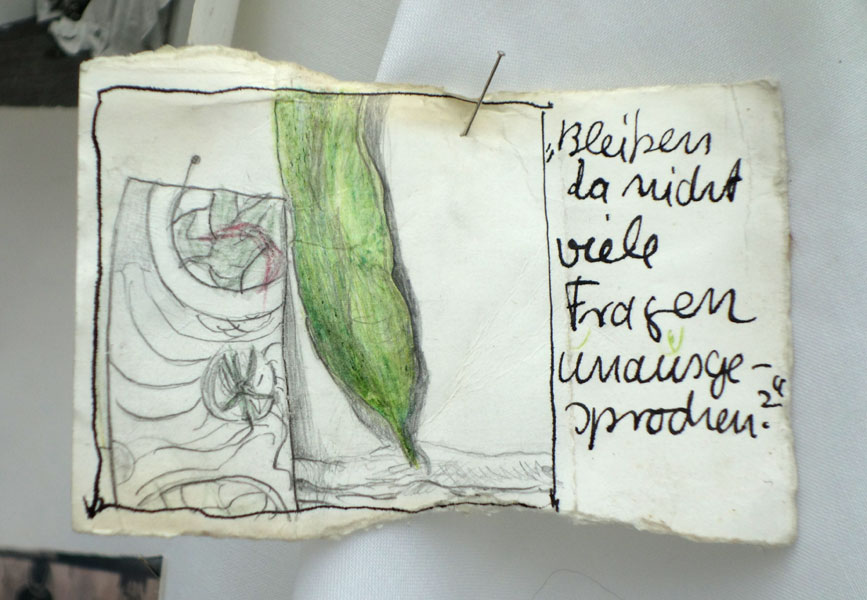 „Bleiben
da nicht
viele
Fragen
unausge-
sprochen?“